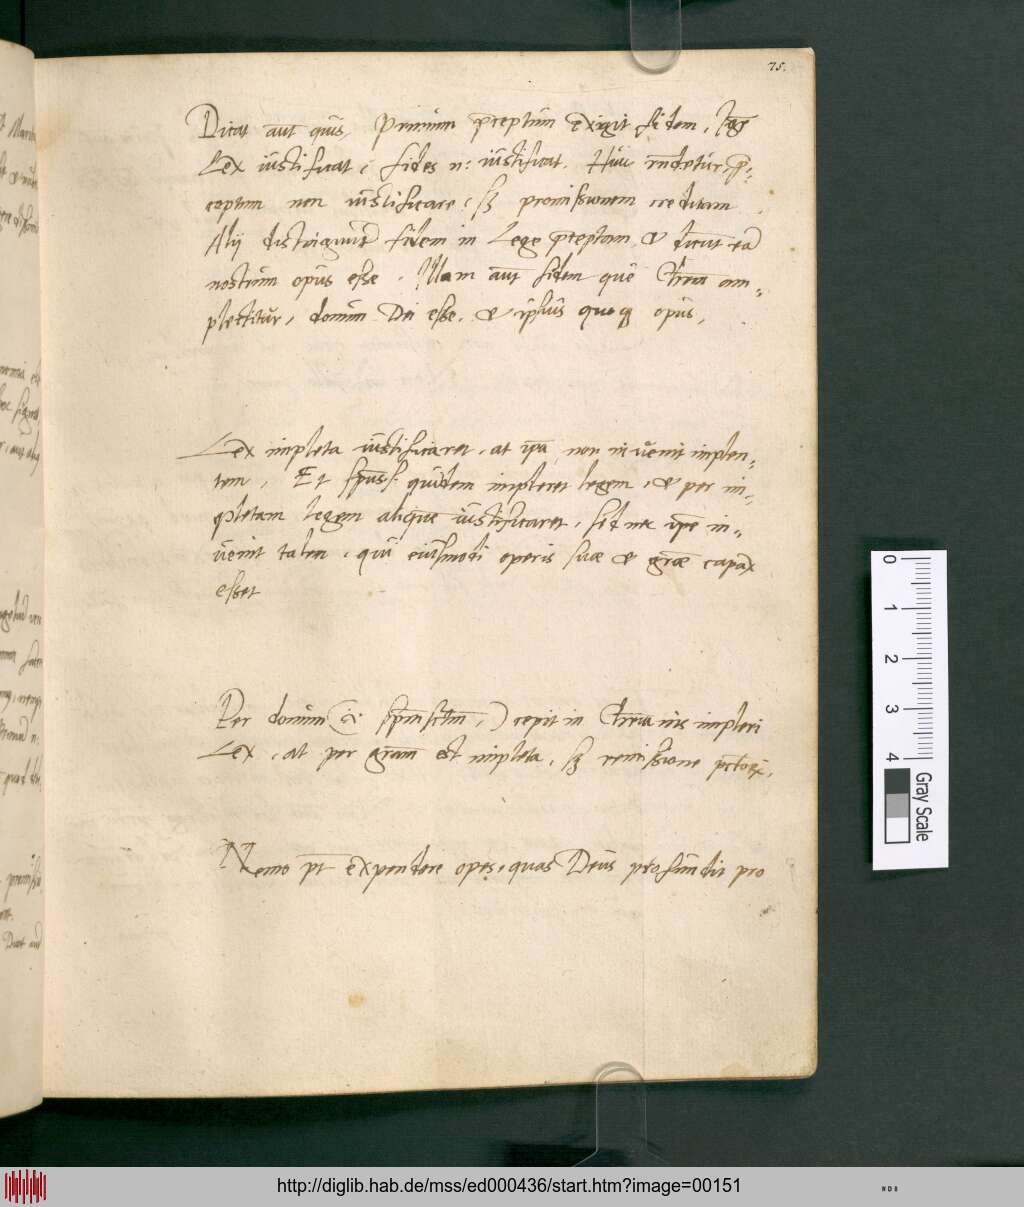 75.
Dicat aut quis, Primum præceptum exigit fidem, Ergo
Lex iustificat, fides n: iustificat. Huic respondetur, præ-
ceptum non iustificare, sed promissionem creditam.
Alij distinguunt fidem in Lege præceptam, & dicunt eā
nostrum opus esse. Illam aut fidem quę Christum am-
plectitur, donum Dei esse, & ipsius quoq opus,
Lex impleta iustificaret, at ipsa non invenit implen-
tem, Et spūs s. quidem impleret legem, & per im-
pletam legem aliquem iustificaret, sed nec ipse in-
venit talem, qui eiusmodi operis sui & grāæ capax
esset
Per donum (i. spm sctm,) cepit in Christianis impleri
Lex, at per grām est impleta, sꝫ remissione pctorꝝ,
Nemo pt expendere opes, quas Deus profundit pro
0
1
2
3
4
Gray Scale
http://diglib.hab.de/mss/ed000436/start.htm?image=00151